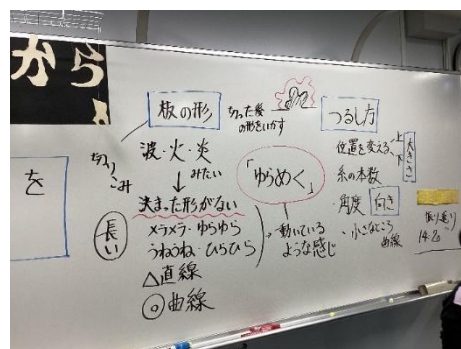 から
を
板の形
切った後
の形をいかす
つるし方
切り
こみ
波・火・炎
みたい
↓
決まった形がない
長い
メラメラ・ゆらゆら
うねうね・ひらひら
△直線
◎曲線
「ゆらめく」
→動いている
ような感じ
位置を変える、上下
大きさ
糸の本数
・角度
向き
・小さなところ
曲線
振り返り